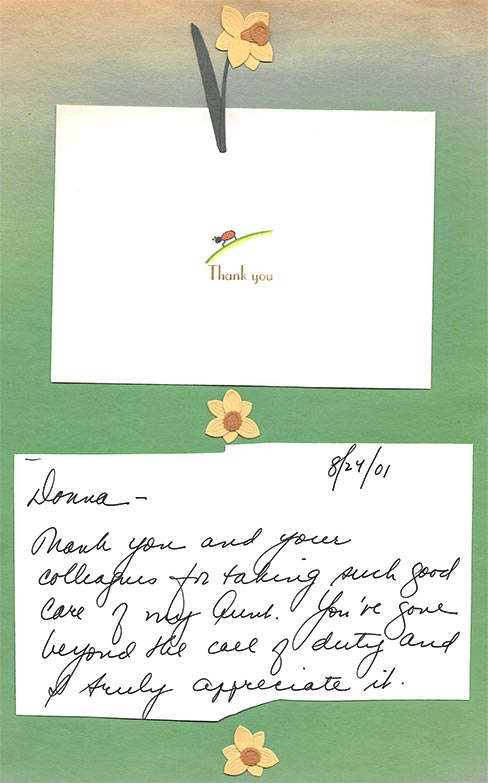 Thank you
8/24/01
Donna -
Thank you and your
colleagues for taking such good
care of my Aunt. You've gone
beyond the call of duty and
I truly appreciate it.